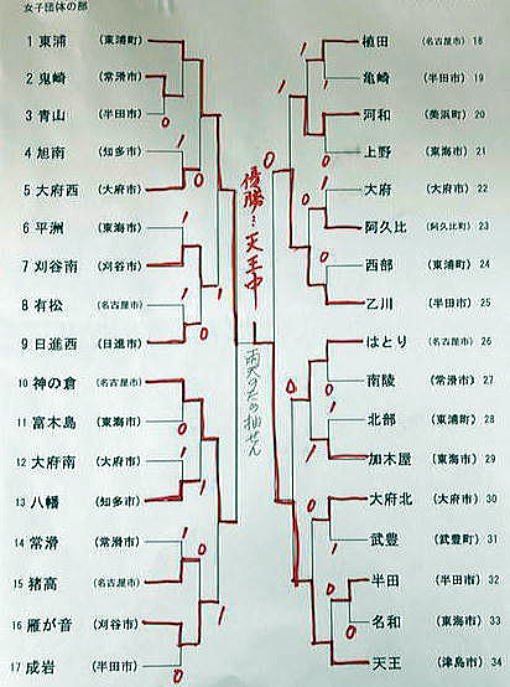 女子団体の部
1 東浦 (東浦町)
2 鬼崎 (常滑市)
3 青山 (半田市)
4 旭南 (知多市)
5 大府西 (大府市)
6 平洲 (東海市)
7 刈谷南 (刈谷市)
8 有松 (名古屋市)
9 日進西 (日進市)
10 神の倉 (名古屋市)
11 富木島 (東海市)
12 大府南 (大府市)
13 八幡 (知多市)
14 常滑 (常滑市)
15 猪高 (名古屋市)
16 雁が音 (刈谷市)
17 成岩 (半田市)
0
1
0
1
1
1
0
0
1
1
1
0
1
0
優勝:天王中
雨天のため抽せん
1
1
1
0
0
1
0
0
0
0
1
1
0
1
0
0
0
植田 (名古屋市) 18
亀崎 (半田市) 19
河和 (美浜町) 20
上野 (東海市) 21
大府 (大府市) 22
阿久比 (阿久比町) 23
西部 (東浦町) 24
乙川 (半田市) 25
はとり (名古屋市) 26
南陵 (常滑市) 27
北部 (東浦町) 28
加木屋 (東海市) 29
大府北 (大府市) 30
武豊 (武豊町) 31
半田 (半田市) 32
名和 (東海市) 33
天王 (津島市) 34